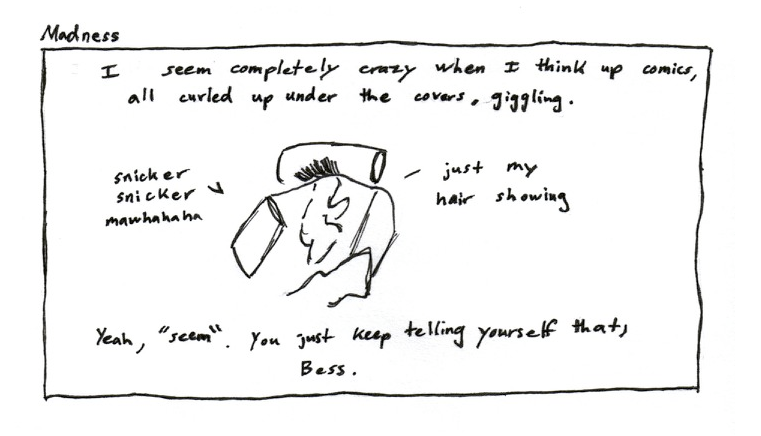 Madness
I seem completely crazy when I think up comics,
all curled up under the covers, giggling.
snicker
snicker
mawhahaha
just my
hair showing
Yeah, "seem". You just keep telling yourself that,
Bess.